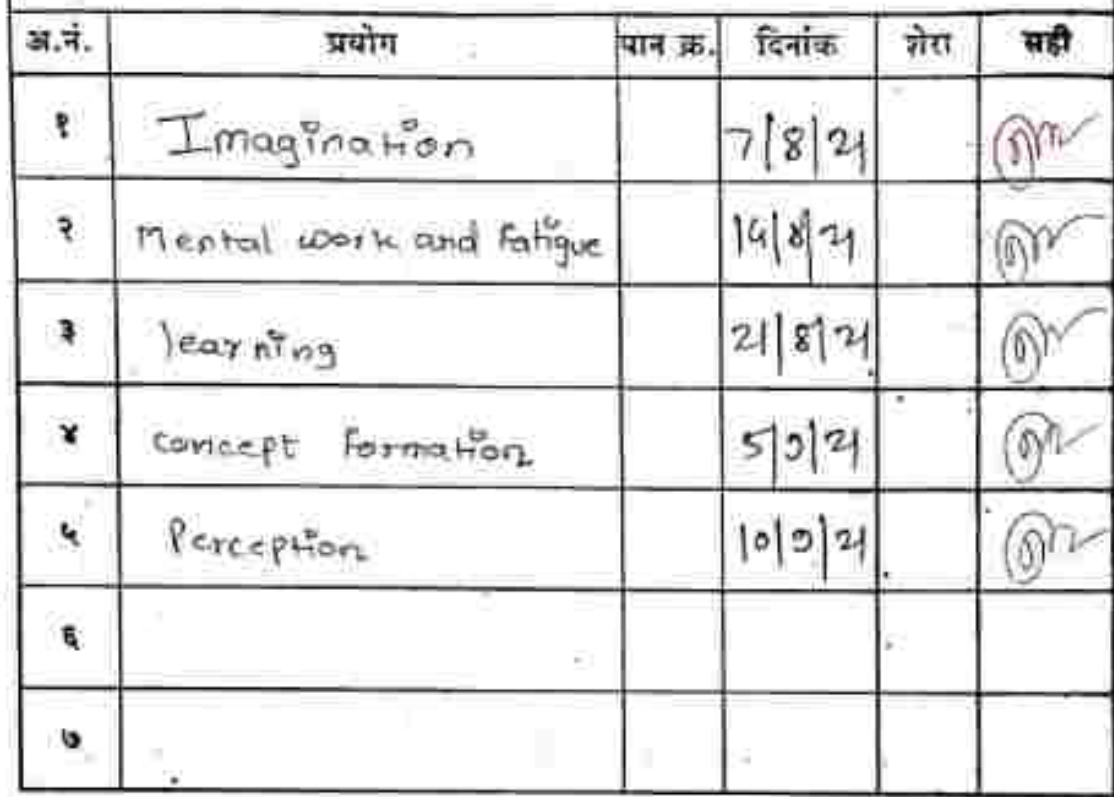 अ.नं. प्रयोग पान क्र. दिनांक शेरा सही
१ Imagination 7/8/21
२ Mental work and Fatigue 14/8/21
३ learning 21/8/21
४ concept formation 5/9/21
५ Perception 10/9/21
६
७